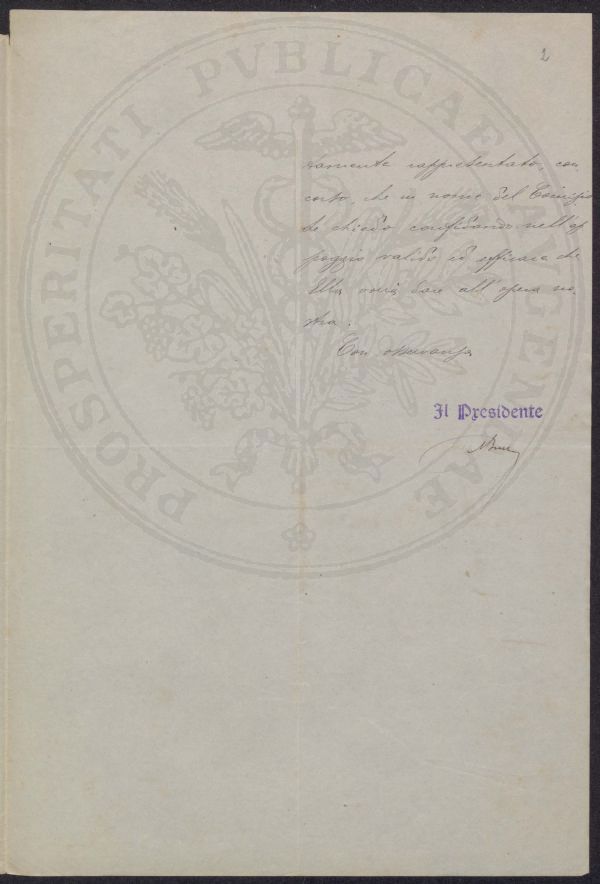 2
PROSPERITATI PVBLICAE AVGENDAE
ramente rappresentato, con
certo, che in nome del Comizio
Le chiedo confidando nell'ap
poggio valido ed efficace che
Ella vorrà dare all'opera no-
stra.
Con osservanza
Il Presidente